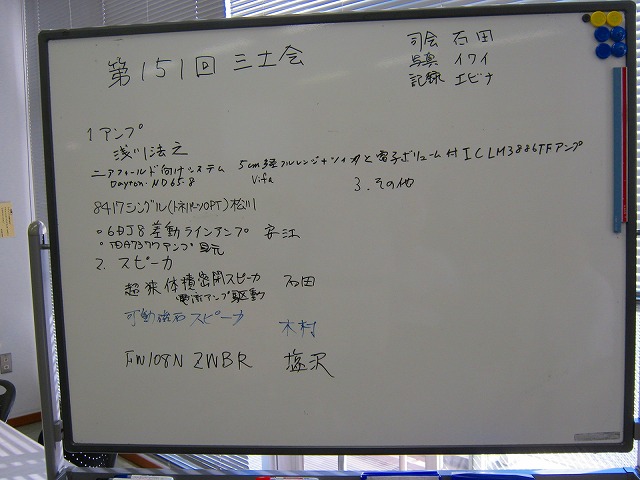 第151回 三土会
司会 石田
写真 イワイ
記録 エビナ
1 アンプ
浅川法之
ニアフィールド向けシステム 5cm径フルレンジ+ツィータと電子ボリューム付ICLM3886TFアンプ
Dayton ND65-8 Vifa
3. その他
8417シングル(トロイダルOPT)松川
○6DJ8差動ラインアンプ 安江
○TDA7377アンプ
2. スピーカ
超狭体積密閉スピーカ 石田
電流アンプ駆動
可動磁石スピーカ 木村
FW108N ZWBR 塩沢